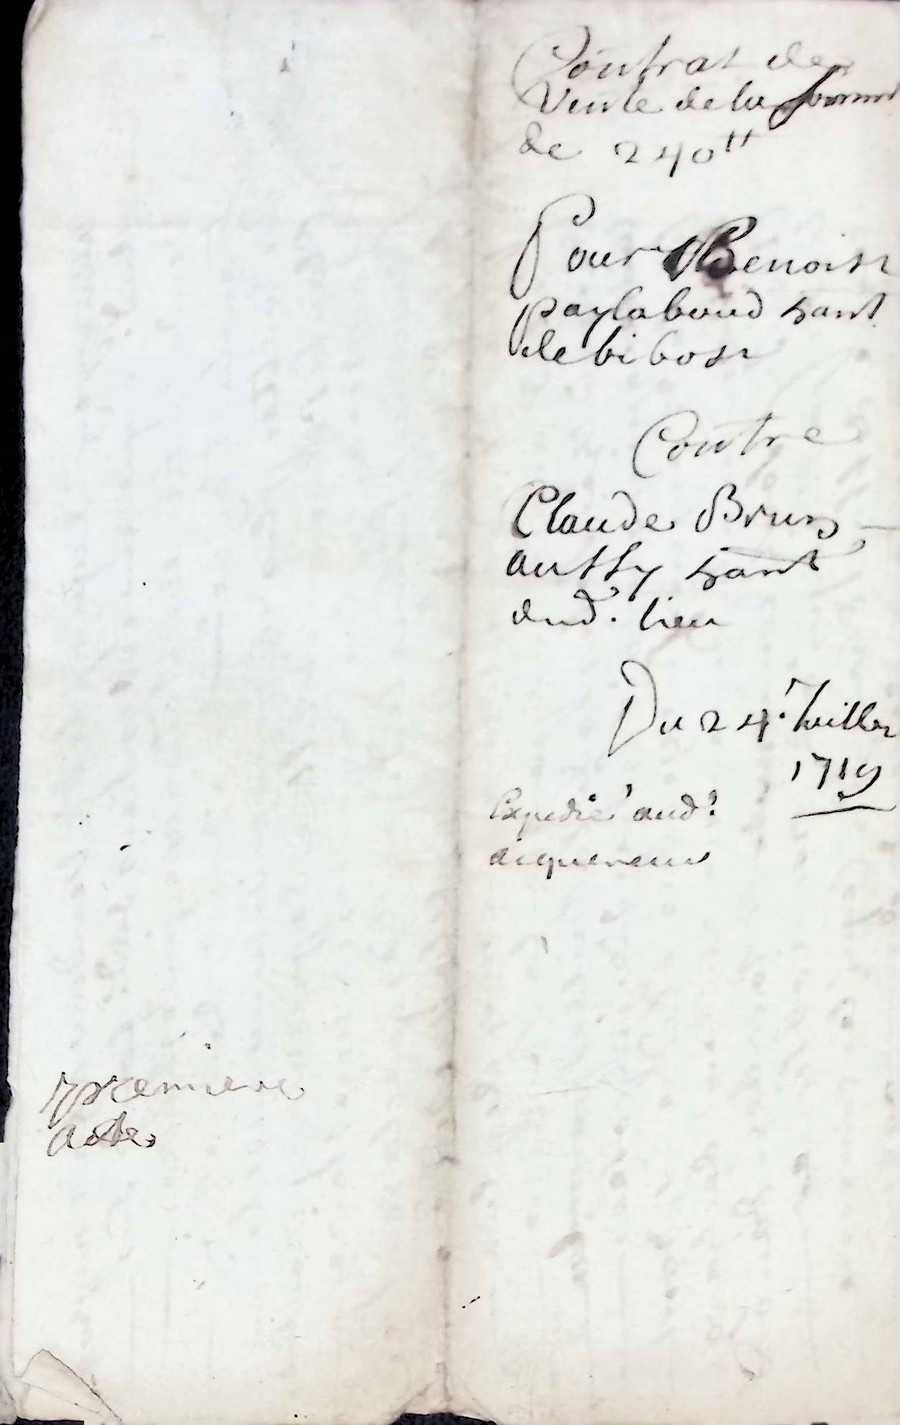 Contrat de
Vente de la somme
de 240tt
Pour Benoist
paylaboud hant
de bibost
Contre
Claude Brun
aussy hant
dud. lieu
Du 24e. Juillet
1719
Expedié aud.
acquereur
premiere
acte